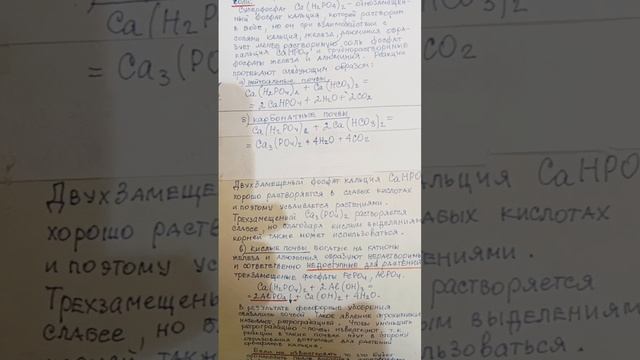 соли.
Суперфосфат Ca(H2PO4)2 - однозамещен-
ный фосфат кальция, который растворим
в воде, но он при взаимодействии с
солями кальция, железа, алюминия обра-
зует менее растворимую соль фосфат
кальция CaHPO4 и труднорастворимые
фосфаты железа и алюминия. Реакции
протекают следующим образом:
а) нейтральные почвы
Ca(H2PO4)2 + Ca(HCO3)2 =
= 2CaHPO4 + 2H2O + 2CO2
б) карбонатные почвы
Ca(H2PO4)2 + 2Ca(HCO3)2 =
= Ca3(PO4)2 + 4H2O + 4CO2
Двухзамещеный фосфат кальция CaHPO
хорошо растворяется в слабых кислотах
и поэтому усваивается растениями.
Трехзамещеный Ca3(PO4)2 растворяется
слабее, но благодаря кислым выделениям
корней также может использоваться.
в) кислые почвы богатые на катионы
железа и алюминия образуют нерастворимые
и соответственно недоступные для растений
трехзамещеные фосфаты FePO4, AlPO4.
Ca(H2PO4)2 + 2Al(OH)3 =
= 2AlPO4↓ + Ca(OH)2 + 4H2O.
В результате фосфорные удобрения
связываются почвой. Такое явление агрохимики
называют ретроградацией. Чтобы уменьшить
ретроградацию - почвы известкуют, т.к.
реакции в таких почвах идут в сторону
образования доступных для растений
фосфатов кальция.
Если не известковать, то это будет